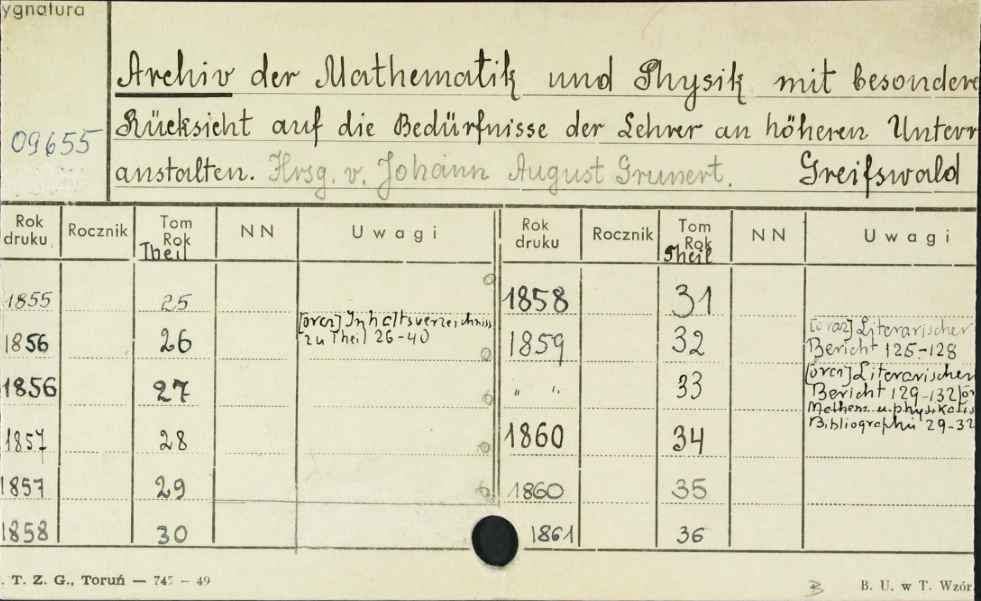 ygnatura
Archiv der Mathematik und Physik mit besondere
09655
Rücksicht auf die Bedürfnisse der Lehrer an höheren Unterr
anstalten. Hrsg. v. Johann August Grunert. Greifswald
Rok druku Rocznik Tom Rok Theil NN Uwagi Rok druku Rocznik Tom Rok Theil NN Uwagi
1855 25 1858 31
1856 26 [oraz] Inhaltsverzeichniss zu Theil 26-40 1859 32 [oraz] Literarischer Bericht 125-128
1856 27 " " 33 [oraz] Literarischer Bericht 129-132 Mathem. u. physikalis Bibliographie 29-32
1857 28 1860 34
1857 29 1860 35
1858 30 1861 36
. T. Z. G., Toruń — 745 – 49 B B. U. w T. Wzór